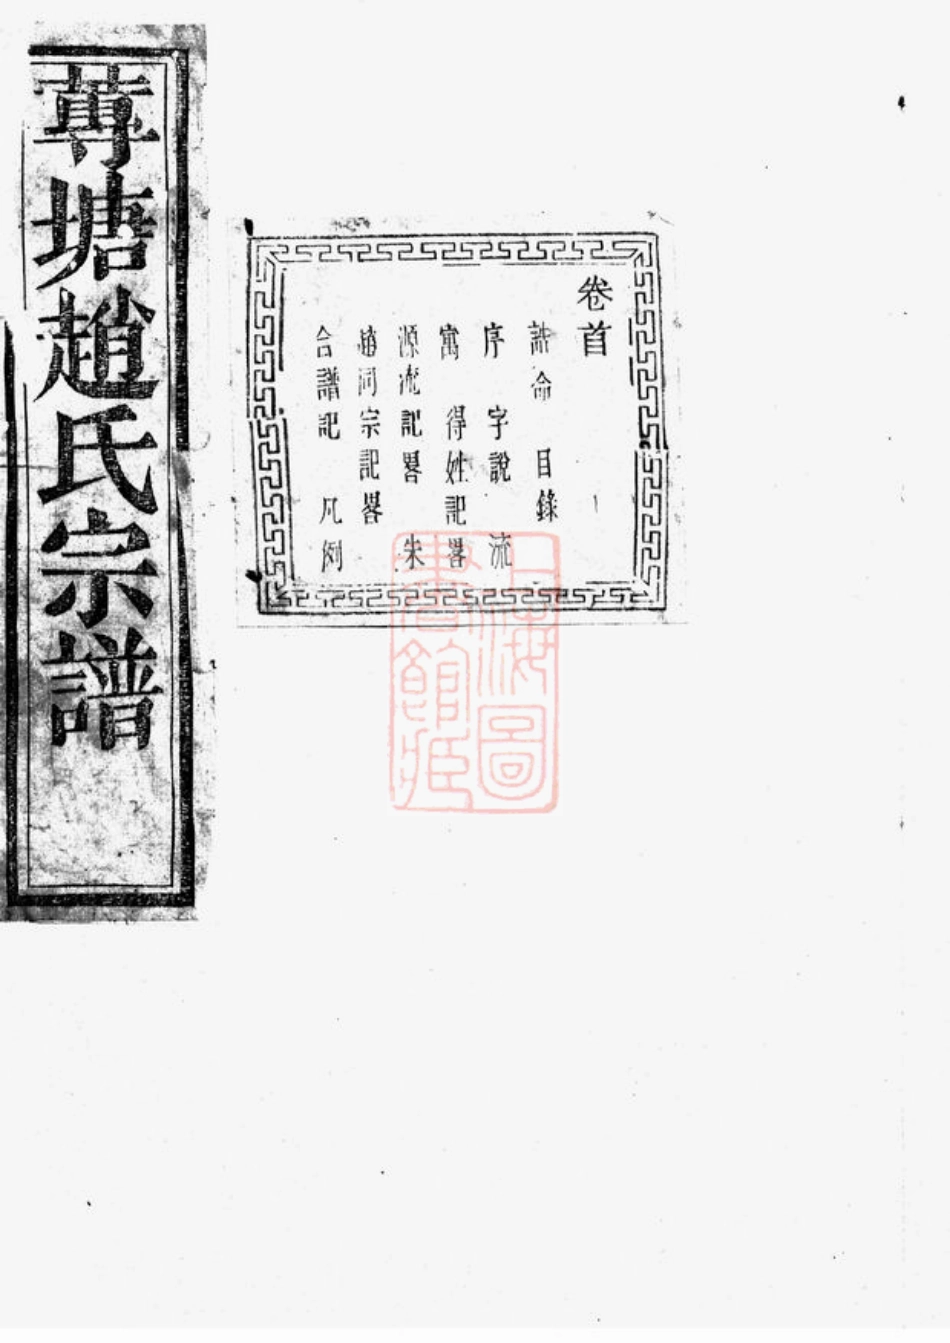 卷首
誥命 目錄
序 字說 流
寓 得姓記畧
源流記畧 朱
趙同宗記畧
合譜記 凡例
蓴塘趙氏宗譜
上海圖
書館藏